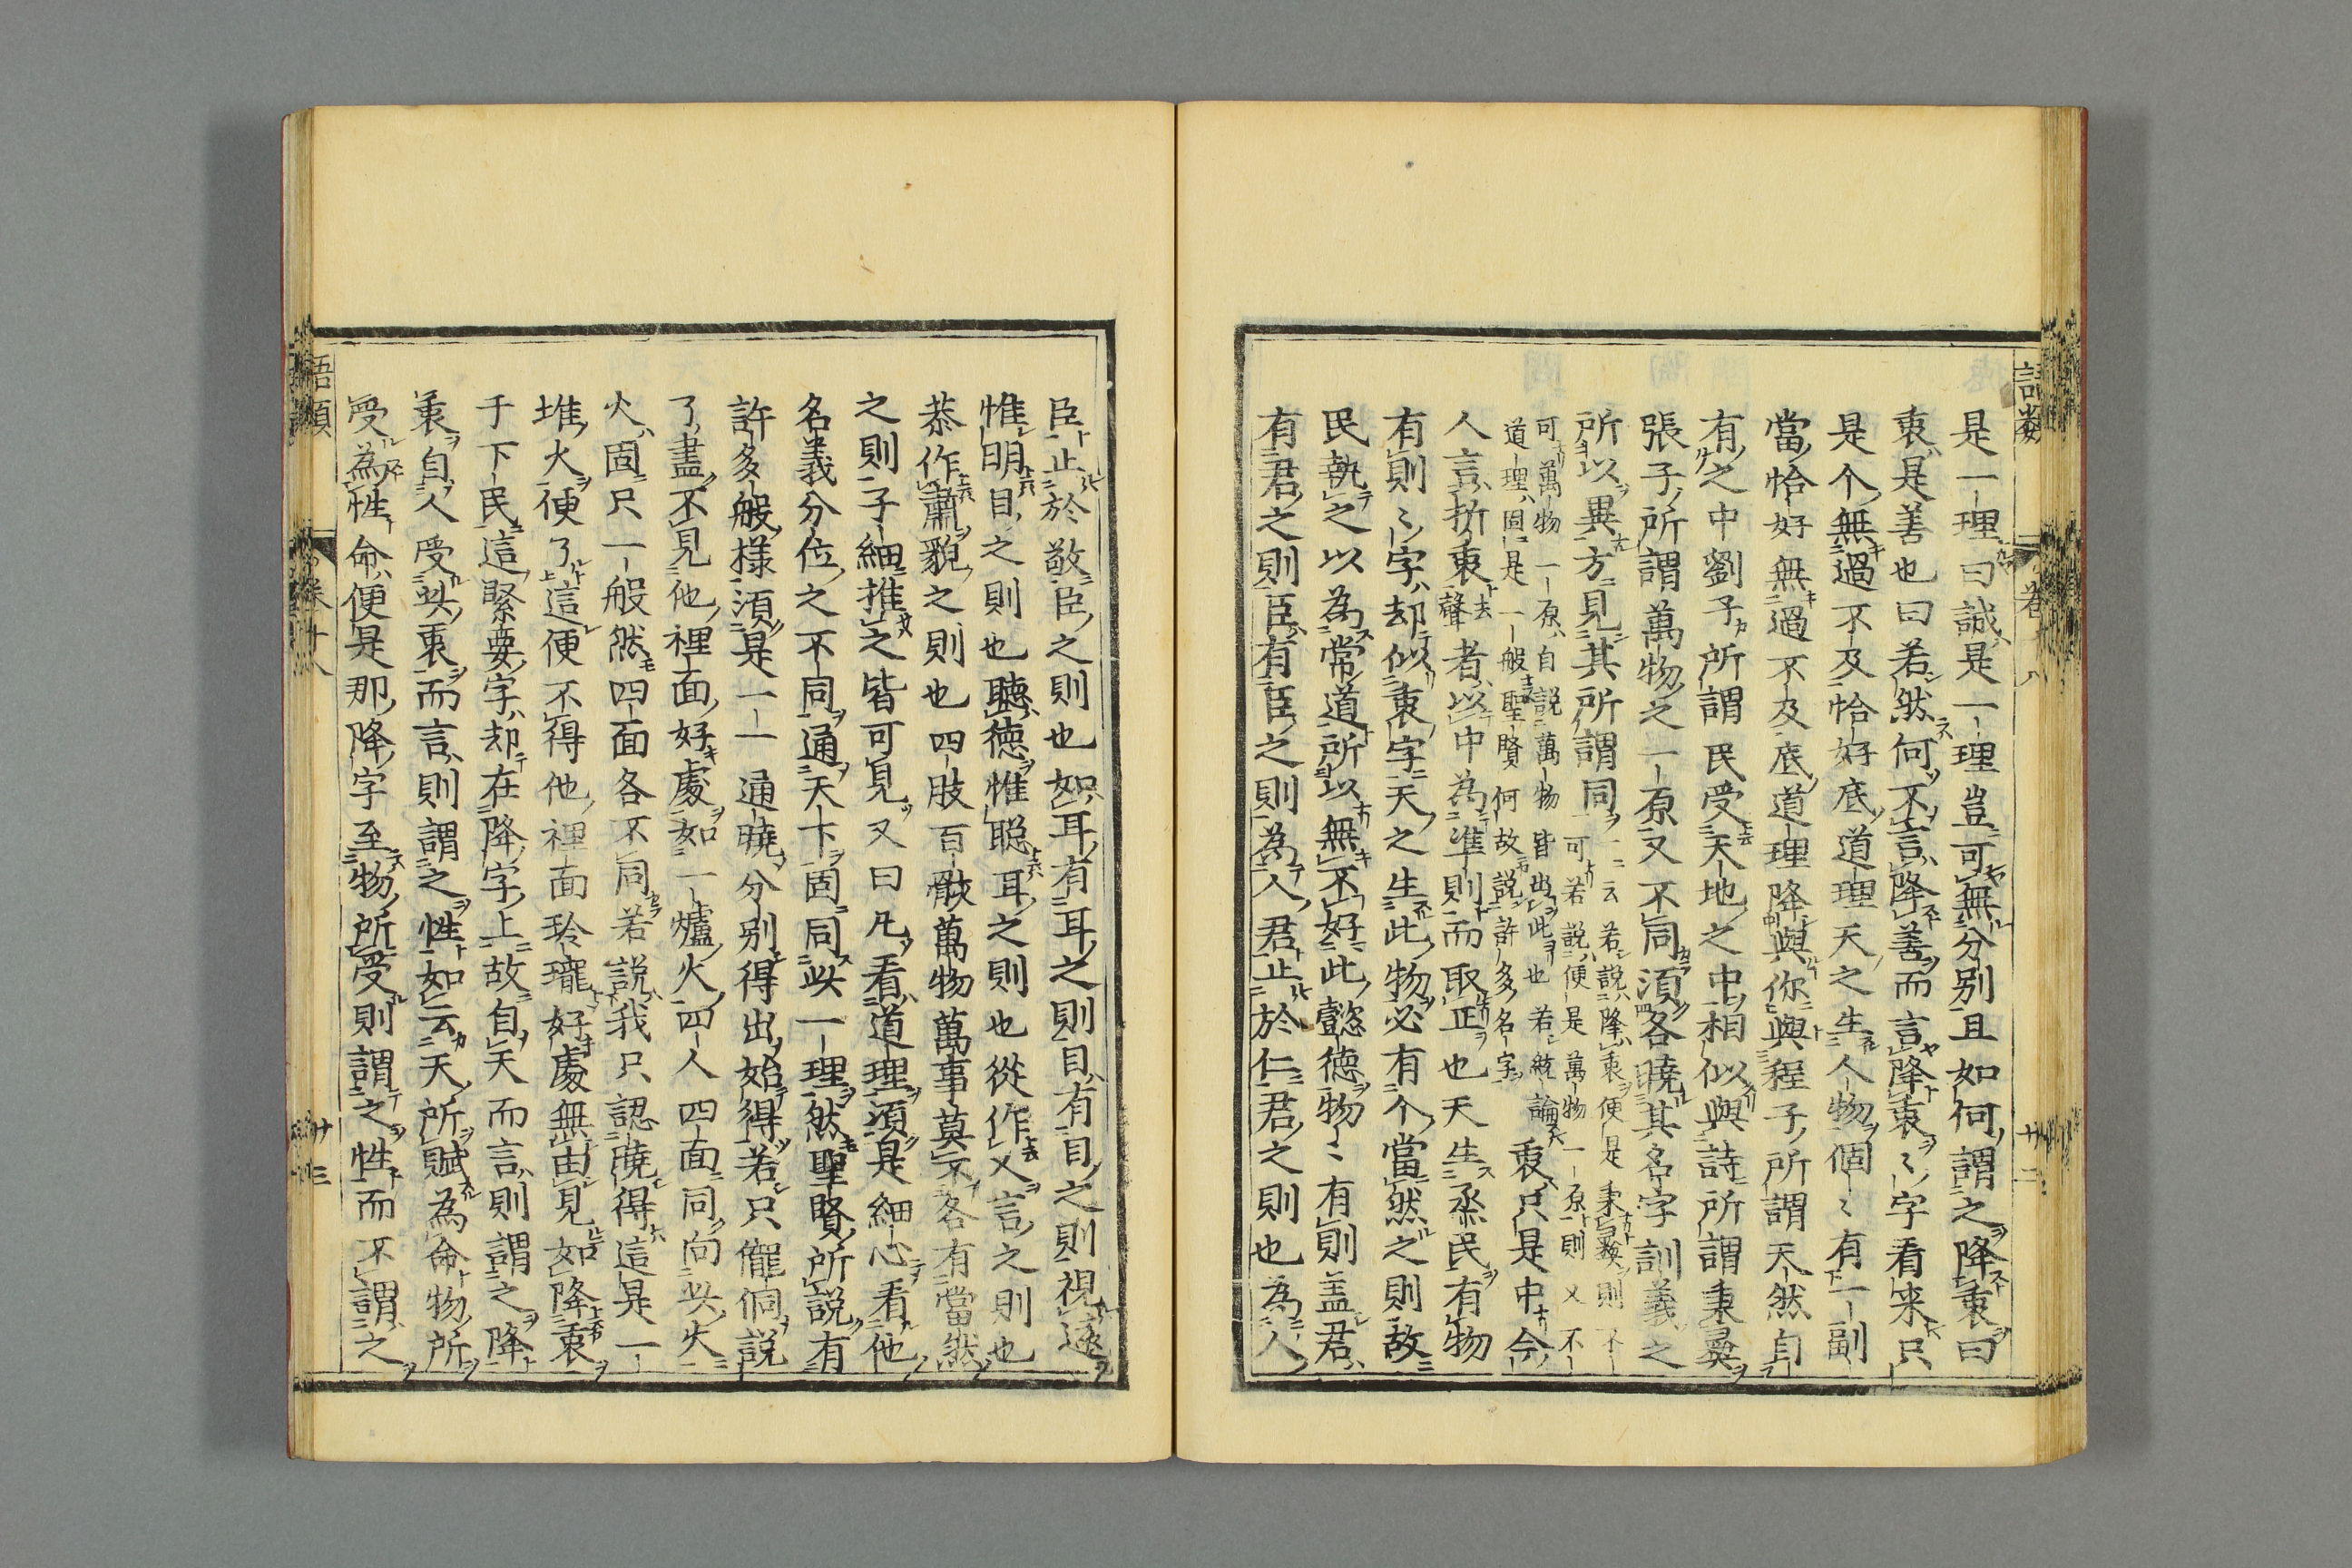 是一理曰誠是一理豈可無分别且如何謂之降衷曰
衷是善也曰若然何不言降善而言降衷〻字看来只
是个無過不及恰好底道理天之生人物個〻有一副
當恰好無過不及底道理降與你與程子所謂天然自
有之中劉子所謂民受天地之中相似與詩所謂秉彛
張子所謂萬物之一原又不同須各曉其名字訓義之
所以異方見其所謂同一云若說降衷便是秉彛則不
可若說便是萬物一原則又不
可萬物一原自說萬物皆出此也若統論
道理固是一般聖賢何故說許多名字衷只是中今
人言折衷去聲者以中為準則而取正也天生烝民有物
有則〻字却似衷字天之生此物必有个當然之則故
民執之以為常道所以無不好此懿德物〻有則盖君
有君之則臣有臣之則為人君止於仁君之則也為人
語類 卷十八 廿二
臣止於敬臣之則也如耳有耳之則目有目之則視遠
惟明目之則也聽德惟聡耳之則也從作乂言之則也
恭作肅貌之則也四肢百骸萬物萬事莫不各有當然
之則子細推之皆可見又曰凡看道理須是細心看他
名義分位之不同通天下固同此一理然聖賢所說有
許多般様須是一一通曉分别得出始得若只儱侗說
了盡不見他裡面好處如一爐火四人四面同向此火
火固只一般然四面各不同若說我只認曉得這是一
堆火便了這便不得他裡面玲瓏好處無由見如降衷
于下民這緊要字却在降字上故自天而言則謂之降
衷自人受此衷而言則謂之性如云天所賦為命物所
受為性命便是那降字至物所受則謂之性而不謂之
語類 卷十八 廿三